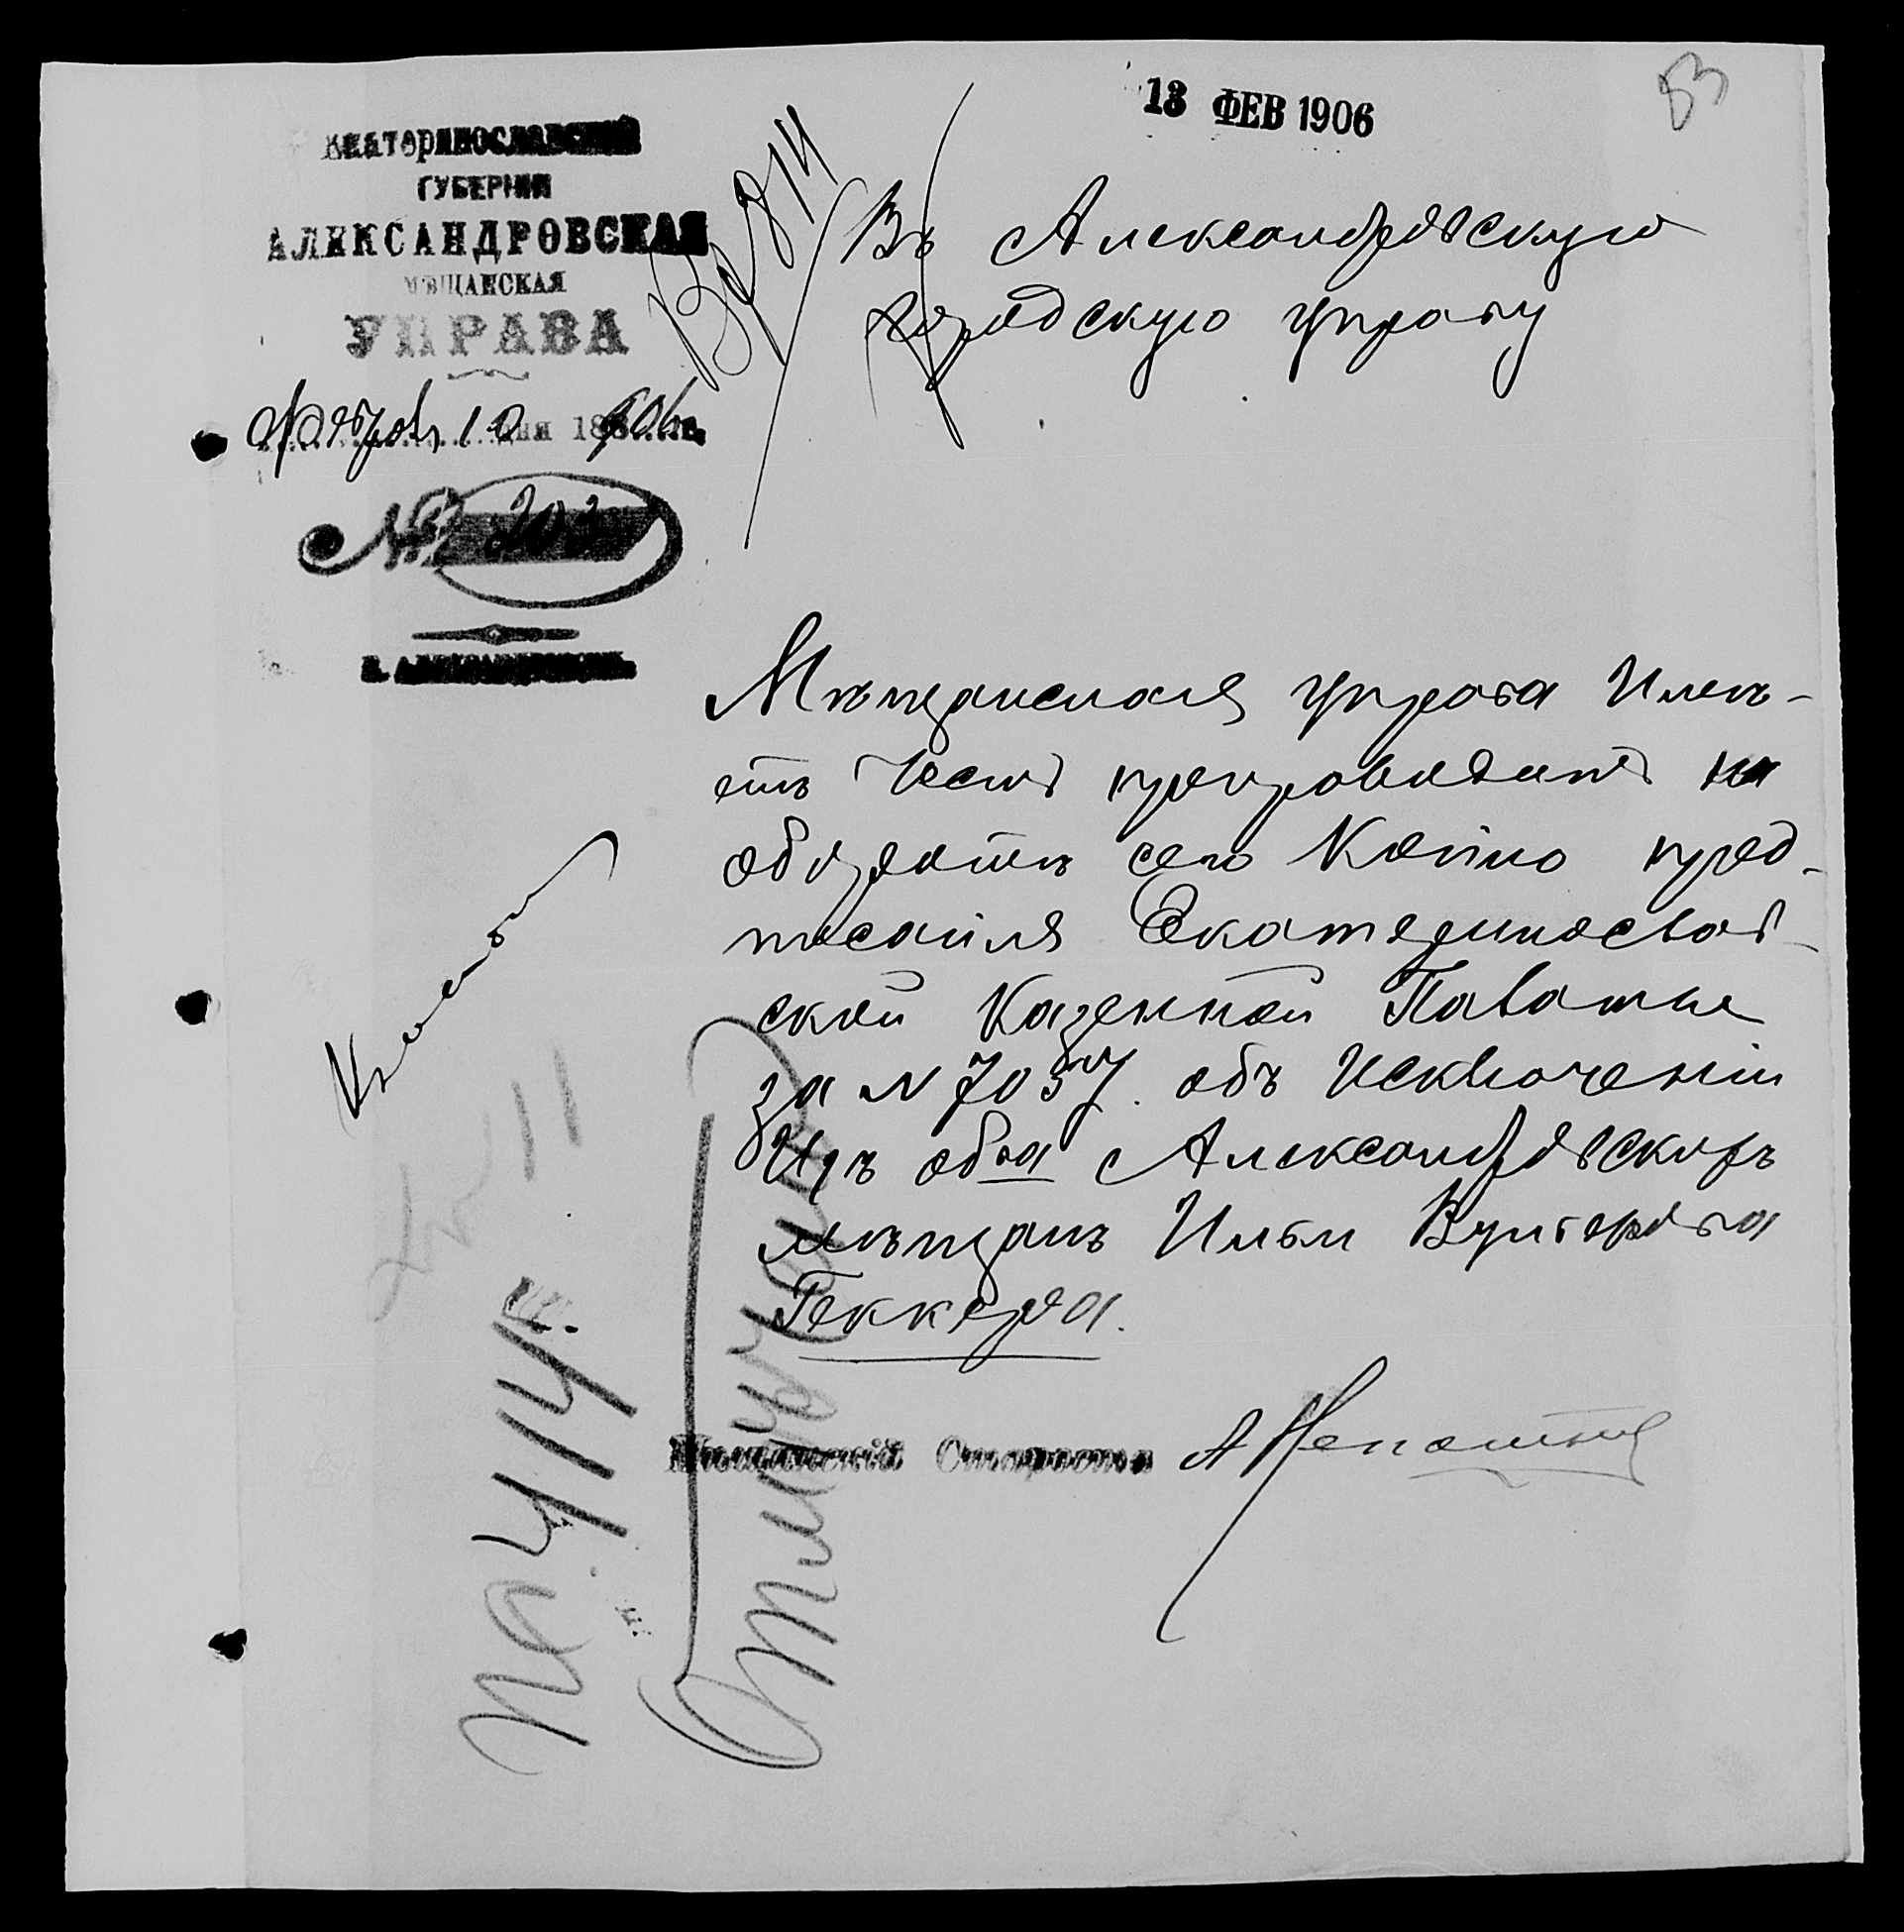 13 ФЕВ 1906
83
Екатеринославской
ГУБЕРНІИ
АЛЕКСАНДРОВСКАЯ
МѢЩАНСКАЯ
УПРАВА
Февраля 10 дня 1906 г.
№ 203
г. Александровскъ.
Въ Александровскую
городскую управу
Мѣщанская управа Имѣ-
етъ Честь препроводить на
оборотѣ сего Копію пред-
писанія Екатеринослав-
ской Казенной Палаты
за N 7057. объ Исключеніи
Изъ о-ва Александровскихъ
мѣщанъ Ильи Вульфова
Геккера.
Мѣщанскій Староста
на 414